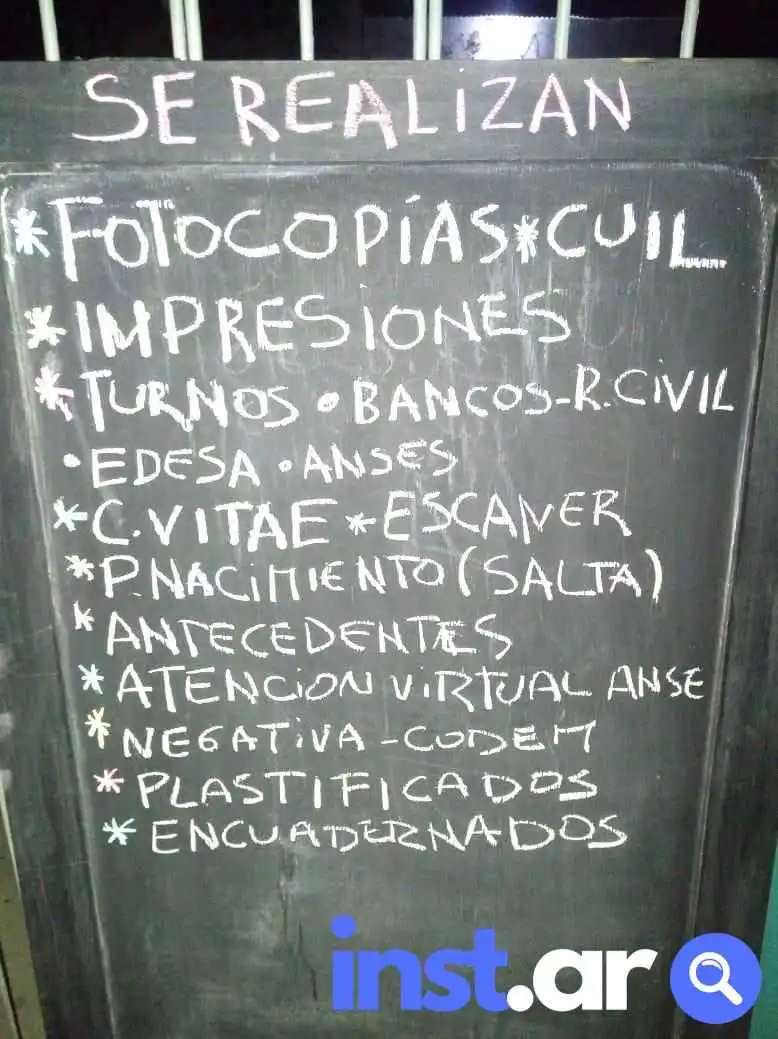 SE REALIZAN
*FOTOCOPÍAS*CUIL
*IMPRESIONES
*TURNOS •BANCOS-R.CIVIL
•EDESA •ANSES
*C.VITAE *ESCANER
*P.NACIMIENTO (SALTA)
*ANTECEDENTES
*ATENCION VIRTUAL ANSE
*NEGATIVA-CODEM
*PLASTIFICADOS
*ENCUADERNADOS
inst.ar